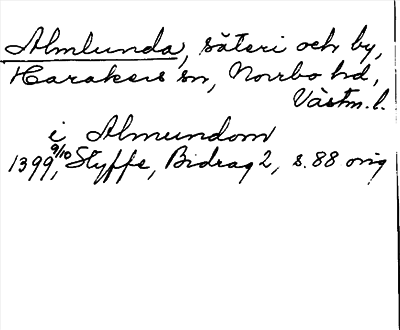 Almlunda, säteri och by,
Harakers sn, Norrbo hd,
Västm. l.
i Almundom
1399 9/10, Styffe, Bidrag 2, s. 88 orig